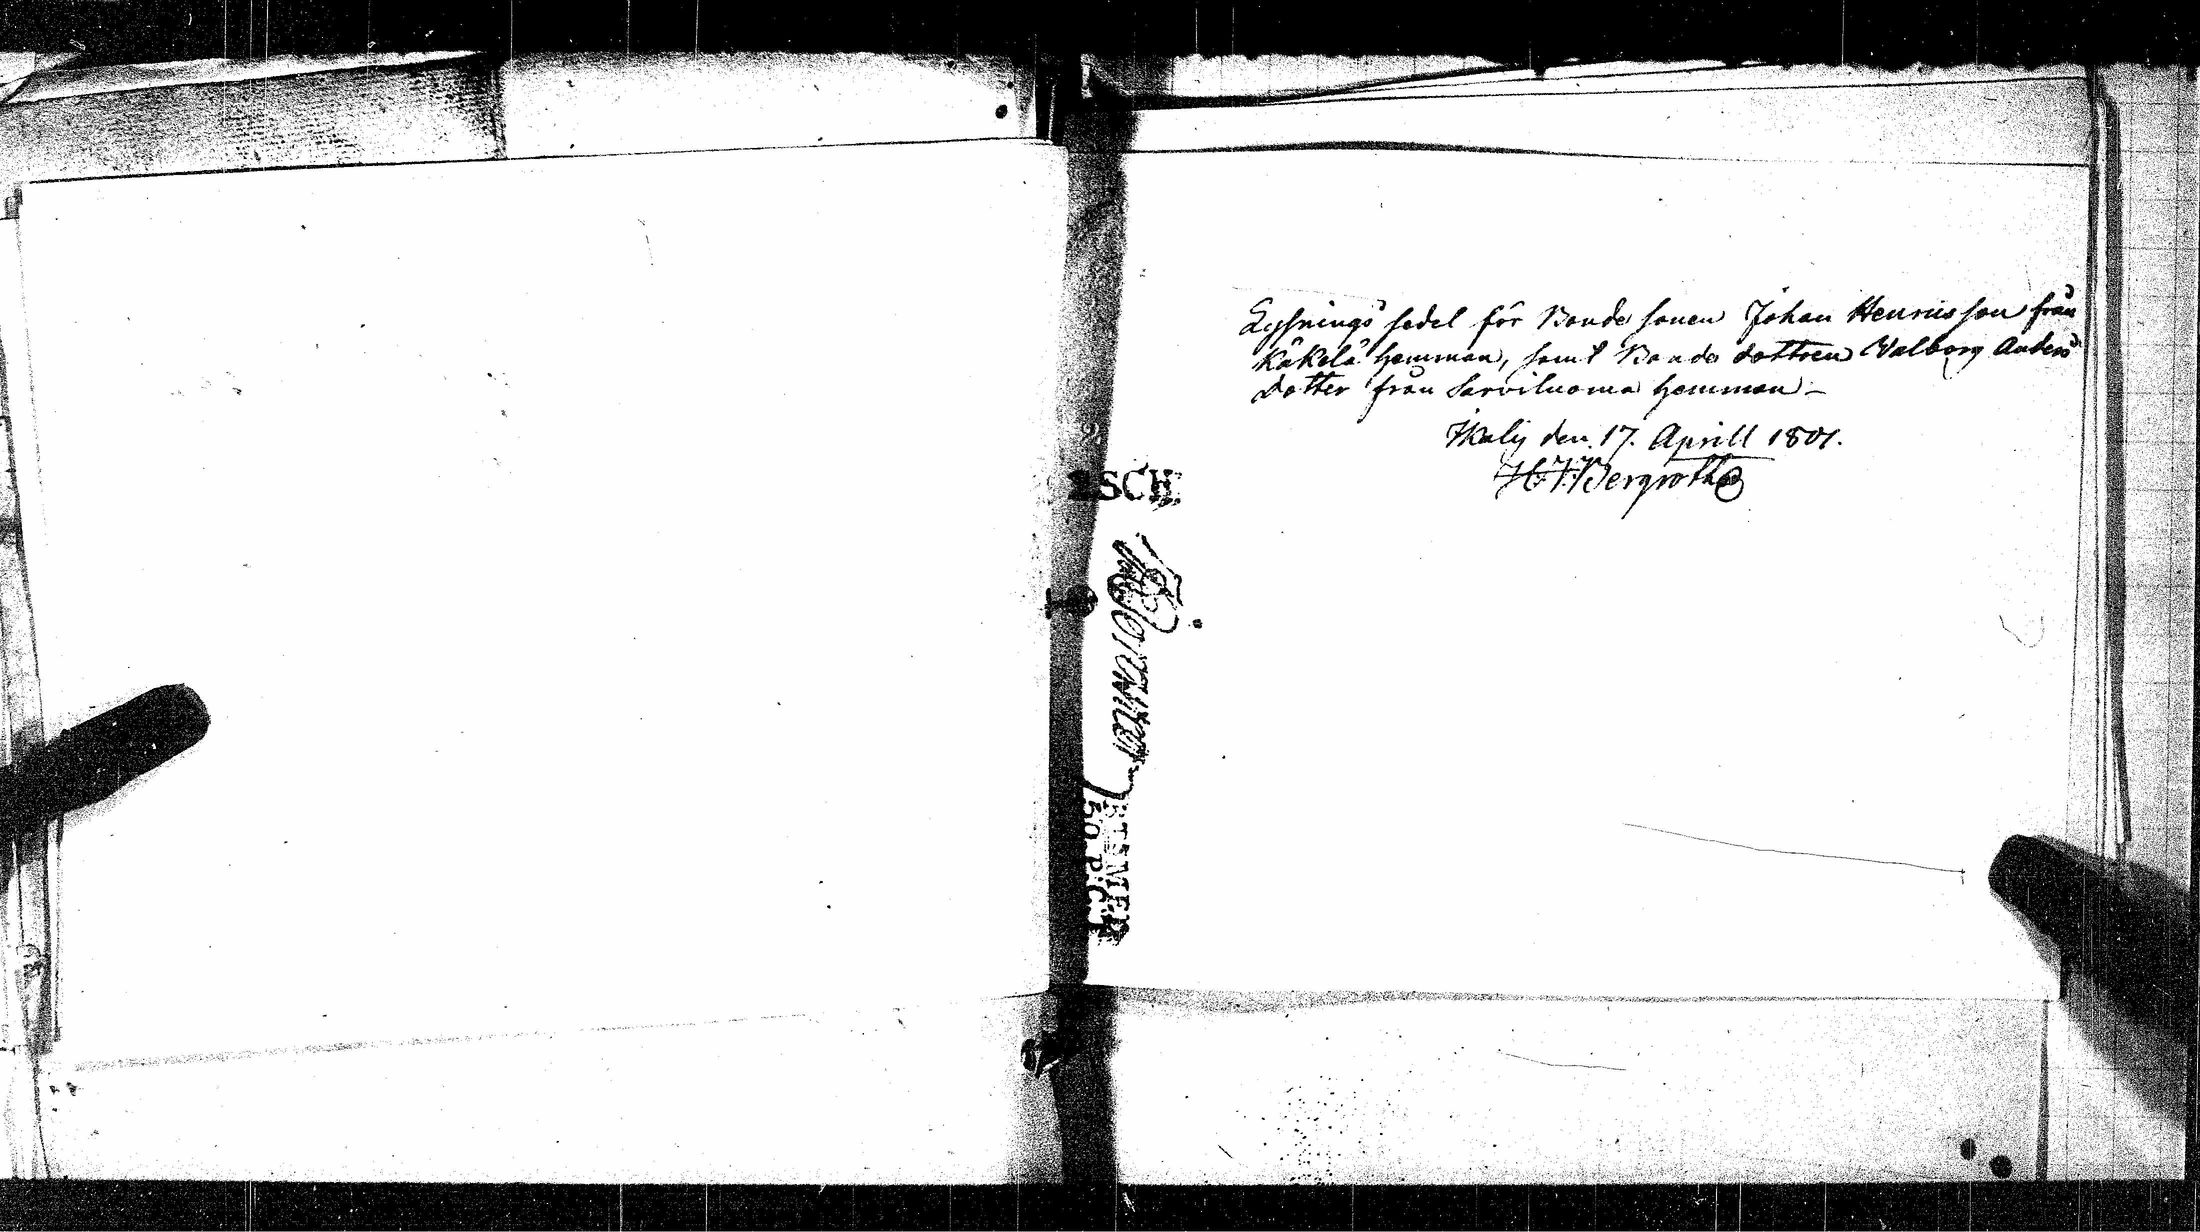 Lysnings sedel för Bonde sonen Johan Henricsson från
Käkelä hemman, samt Bonde dottren Valborg Anders
dotter från Sarviluoma hemman –
Ikalis den 17. Aprill 1801.
H J Bergroth
SCH
50 P:CT